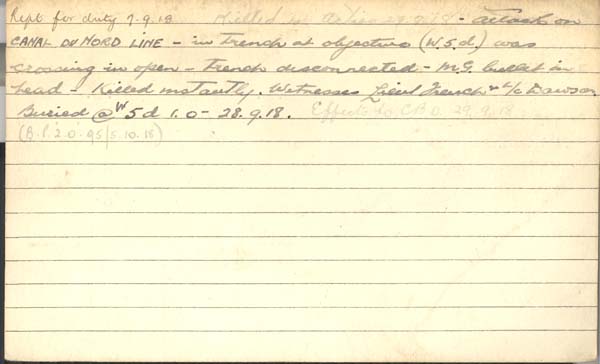 Rept for duty 7.9.18 Killed in action 27.9.18 - attack on
CANAL DU NORD LINE - in trench at objective (W.5.d.) was
crossing in open - trench disconnected - M.G. bullet in
head - Killed instantly. Witnesses Lieut French & L/c Dawson.
Buried @ W 5 d 1.0 - 28.9.18. Effects to C.B.O. 29.9.18
(B.P. 2.0.95/5.10.18)